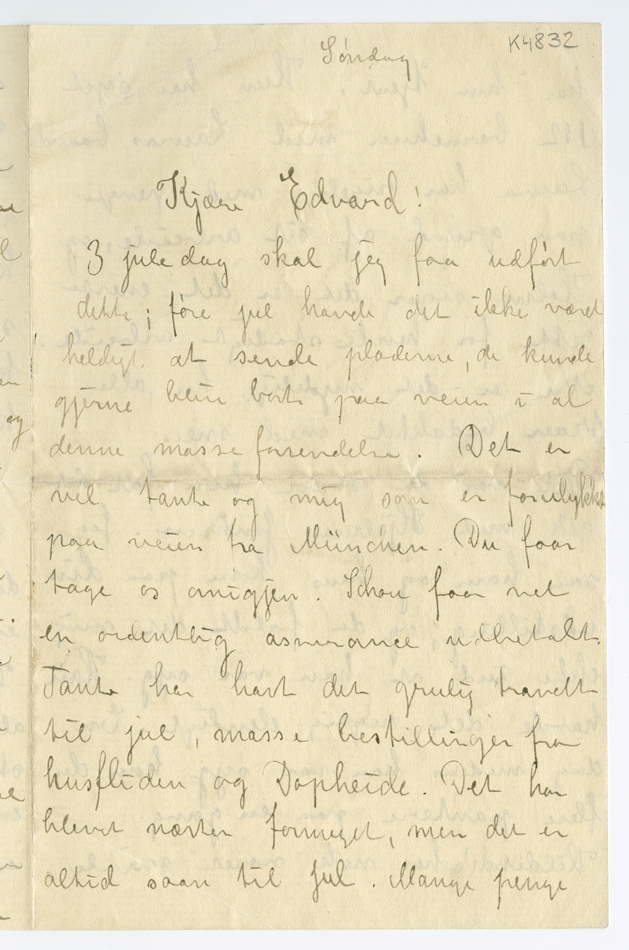 Søndag K4832
Kjære Edvard!
3 juledag skal jeg faa udført
dette; føre jul havde det ikke været
heldigt at sende pladerne, de kunde
gjerne blive bort paa veien i al
denne masse forsendelse. Det er
vel tante og mig som er forulykket
paa veien fra München. Du faar
tage os omigjen. Schou faar vel
en ordentlig assurance udbetalt.
Tante har havt det grulig travelt
til jul, masse bestillinger fra
husfliden og Dopheide. Det har
blevet næsten formeget, men det er
altid saan til jul. Mange penge